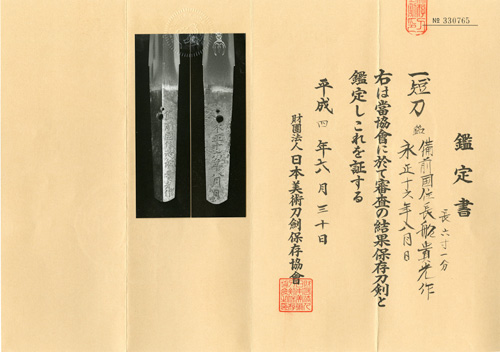 № 330765
鑑定書
一短刀 銘 備前国住長船貴光作
永正十六年八月日
長六寸一分
右は當協會に於て審査の結果保存刀剣と
鑑定しこれを証する
平成四年六月三十日
財團法人日本美術刀劍保存協會